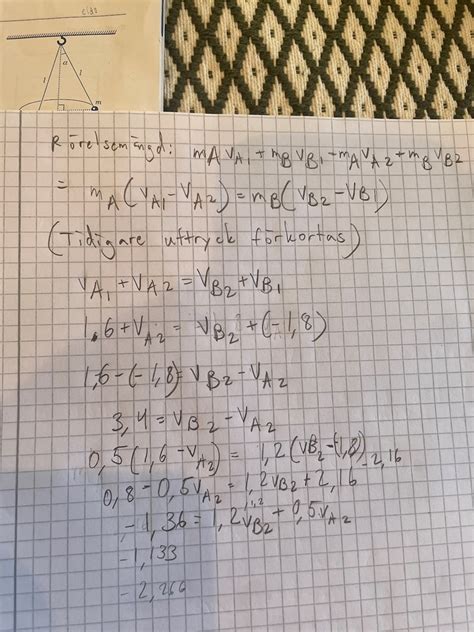 l
a
l
m
Rörelsemängd: mAvA1+mBvB1=mAvA2+mBvB2
= mA(vA1-vA2)=mB(vB2-vB1)
(Tidigare uttryck förkortas)
vA1+vA2=vB2+vB1
1,6+vA2=vB2+(-1,8)
1,6-(-1,8)=vB2-vA2
3,4=vB2-vA2
0,5(1,6-vA2)=1,2(vB2-(-1,8) -2,16
0,8-0,5vA2=1,2vB2+2,16
-1,36=1,2vB2+0,5vA2
-1,133
-2,266